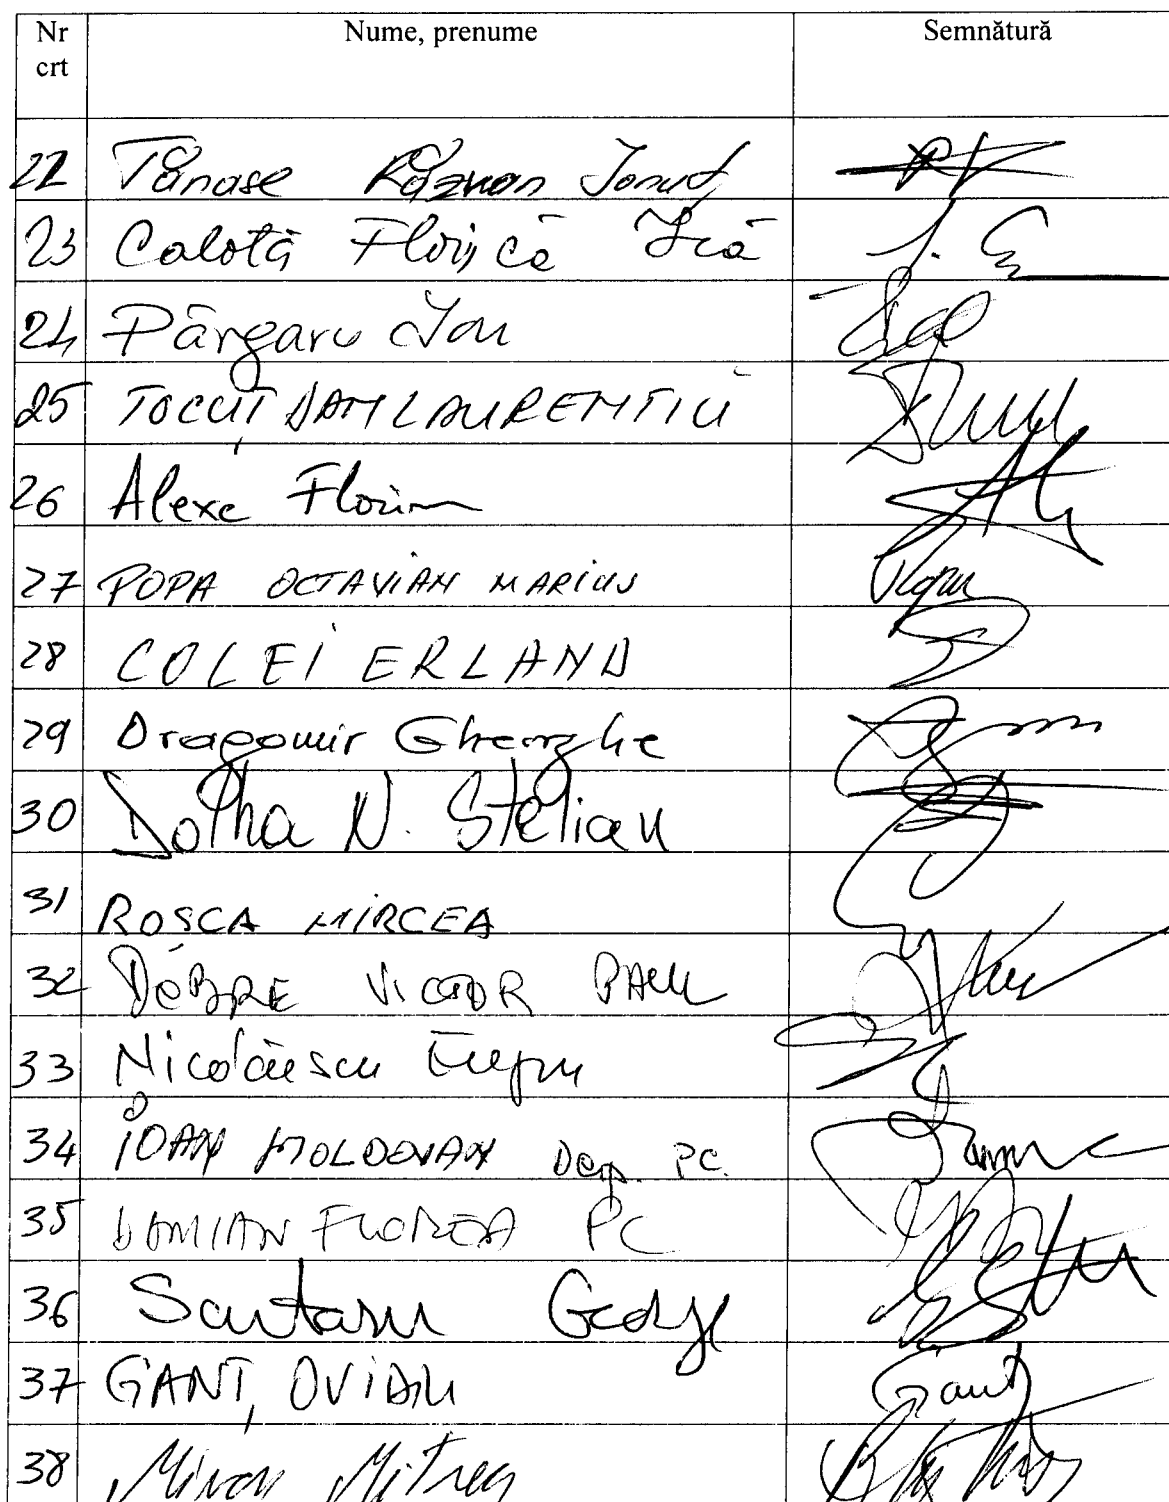 Nr crt Nume, prenume Semnătură
22 Tănase Răzvan Ionuț
23 Calotă Florică Ică
24 Pârgaru Ion
25 TOCUȚ DAN LAURENTIU
26 Alexe Florin
27 POPA OCTAVIAN MARIUS
28 COLEI ERLAND
29 Dragomir Gheorghe
30 Dolha N. Stelian
31 ROȘCA MIRCEA
32 DOBRE VICTOR PAUL
33 Nicolăescu Eugen
34 IOAN MOLDOVAN Dep. PC.
35 DAMIAN FLOREA PC
36 Scutaru George
37 GANȚ OVIDIU Ganț
38 Miron Mitrea